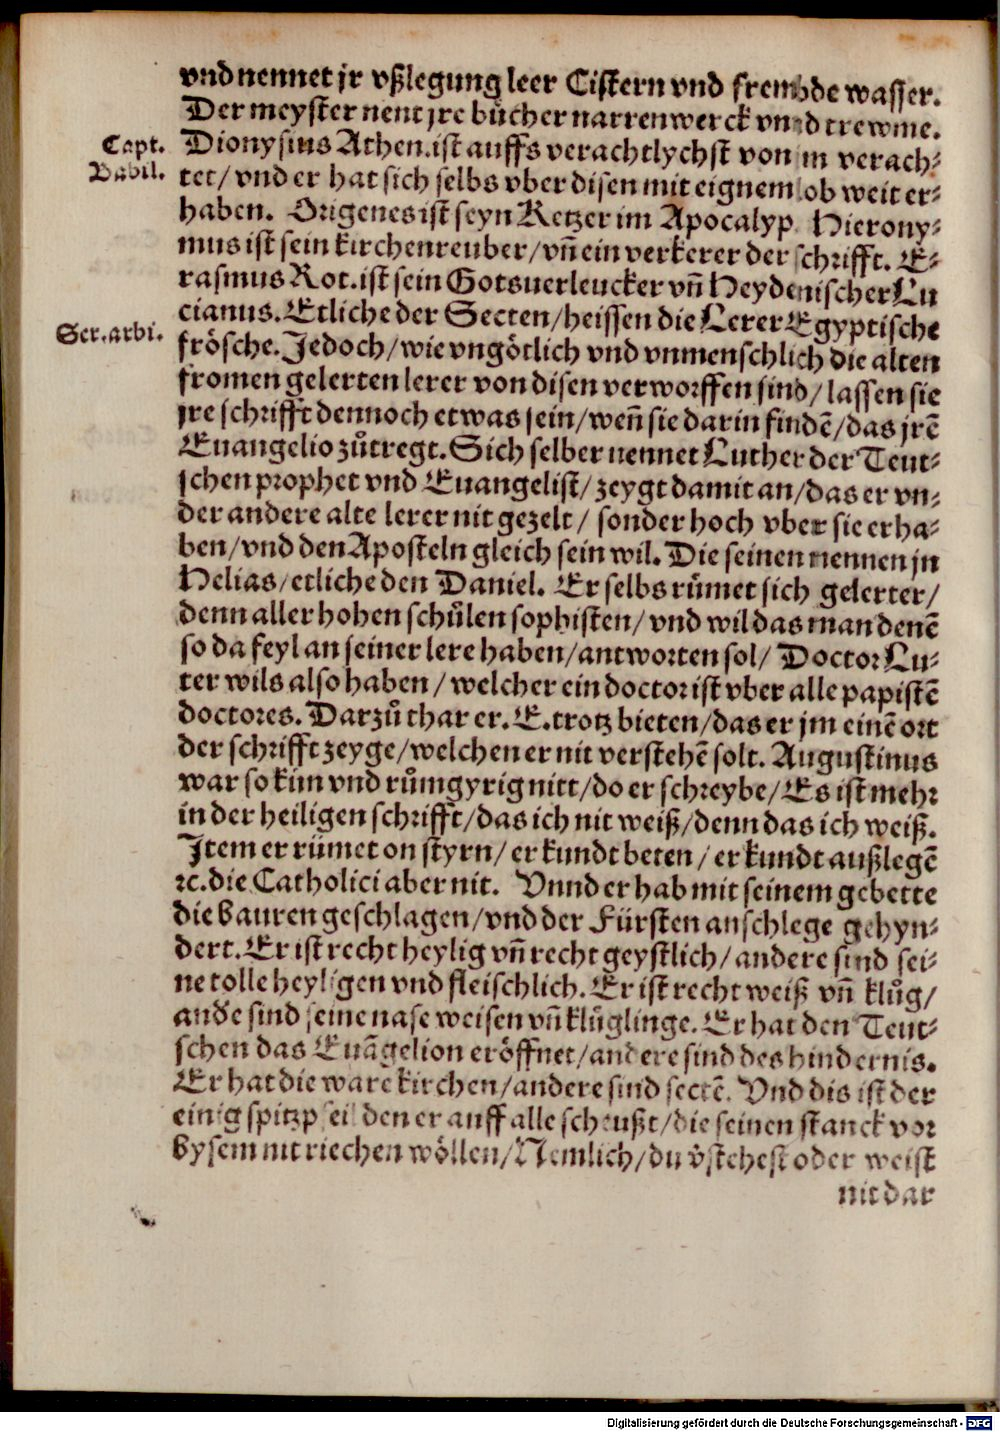 vnd nennet jr vßlegung leer Cistern vnd frembde wasser.
Der meyster nent jre bůcher narrenwerck vnnd trewme.
Capt.
Babil.
Dionysius Athen. ist auffs verachtlychst von jm verach-
tet/ vnd er hat sich selbs vber disen mit eignem lob weit er-
haben. Origenes ist seyn Ketzer im Apocalyp. Hierony-
mus ist sein kirchenreuber/ vñ ein verkerer der schrifft. E-
rasmus Rot. ist sein Gotsuerleucker vñ Heydenischer Lu
cianus. Etliche der Secten/ heissen die Lerer Egyptische
Ser. arbi.
frösche. Jedoch/ wie vngötlich vnd vnmenschlich die alten
fromen gelerten lerer von disen verworffen sind/ lassen sie
jre schrifft dennoch etwas sein/ weñ sie darin findẽ/ das jrẽ
Euangelio zůtregt. Sich selber nennet Luther der Teut-
schen prophet vnd Euangelist/ zeygt damit an/ das er vn-
der andere alte lerer nit gezelt/ sonder hoch vber sie erha-
ben/ vnd den Aposteln gleich sein wil. Die seinen nennen jn
Helias/ etliche den Daniel. Er selbs růmet sich gelerter/
denn aller hohen schůlen sophisten/ vnd wil das man denẽ
so da feyl an seiner lere haben/ antworten sol/ Doctor Lu-
ter wils also haben/ welcher ein doctor ist vber alle papistẽ
doctores. Darzů thar er. E. trotz bieten/ das er jm einẽ ort
der schrifft zeyge/ welchen er nit verstehẽ solt. Augustinus
war so kün vnd růmgyrig nitt/ do er schreybe/ Es ist mehr
in der heiligen schrifft/ das ich nit weiß/ denn das ich weiß.
Jtem er rümet on styrn/ er kundt beten/ er kundt außlegẽ
ꝛc. die Catholici aber nit. Vnnd er hab mit seinem gebette
die bauren geschlagen/ vnd der Fürsten anschlege gehyn-
dert. Er ist recht heylig vñ recht geystlich/ andere sind sei-
ne tolle heyligen vnd fleischlich. Er ist recht weiß vñ klůg/
andͤe sind seine naseweisen vñ klůglinge. Er hat den Teut-
schen das Euãgelion eröffnet/ andere sind des hindernis.
Er hat die ware kirchen/ andere sind sectẽ. Vnd dis ist der
einig spitzpfeil den er auff alle scheußt/ die seinen stanck vor
bysem nit riechen wöllen/ Nemlich/ du v̊stehest oder weist
nit dar
Digitalisierung gefördert durch die Deutsche Forschungsgemeinschaft - DFG